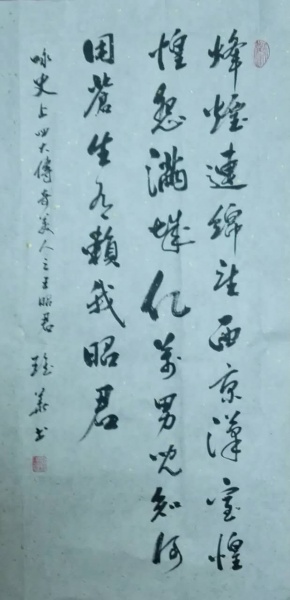 烽煙連綿西京漢室惶
惶怨滿城亿萬男兒知何
用蒼生有賴我昭君
咏史上四大傳奇美人之王昭君 書